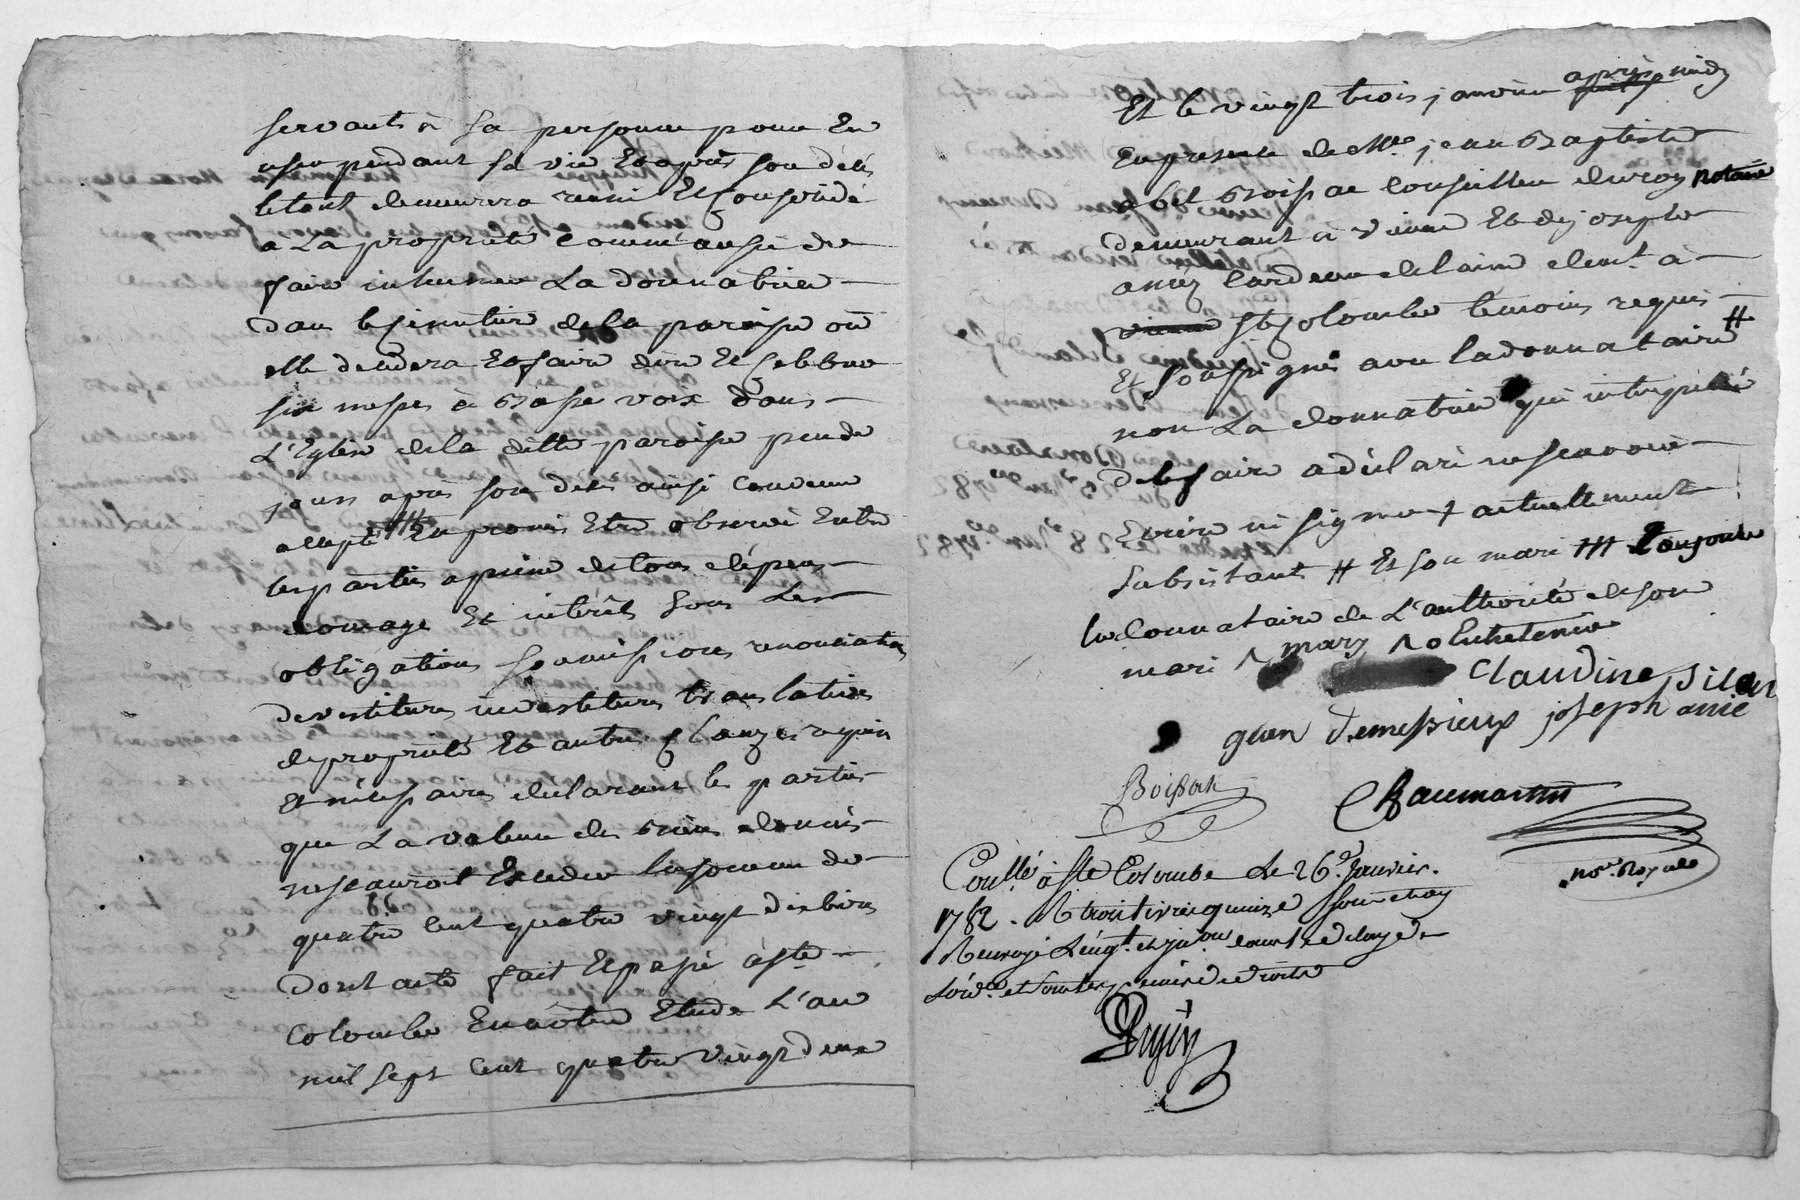 servants à sa personne pour En
user pendant sa vie Et après son décès
le tout demeurera reuni Et Consolidé
a La propriété comm'aussi de
faire inhumer La donnatrice
dans le Cimetiere de la paroisse où
elle décédera Et faire dire Et Celebrer
six messes à Basse voix dans
L'Eglise de la ditte paroisse
jours après son deces ainsi Convenu
accepté Et promis Etre observé Entre
les parties a peine de tous dépens
domage Et intérêts sous Les
obligations soumissions renonciations
devestitures investitures translatives
de propriété Et autres Clauzes requises
Et nécessaires declarant les parties
que La valeur des Biens donnés
ne sauroit Exceder la somme de
quatre cent quatre vingt dix livres
Dont acte fait Et passé à Ste
Colombe En nôtre Etude L'an
mil sept cent quatre vingt deux
Et le vingt trois janvier après midy
En presence de Me jean Baptiste
abel Boissat conseiller du roy notaire
demeurant à vienne Et de joseph
anié cardeur de laine demt. à
Ste Colombe temoins requis
Et soussignés avec la donnataire #
non La donnatrice qui interpellée
de le faire a déclaré ne scavoir
Ecrire ni signer + actuellement
subsistants # Et son mari ###
la donnataire de L'authorité de son
mari mary Entretenir
Claudine Silan
guen demessieux joseph anié
Boissat
Baumartin
nore. Royal
Conllé. à Ste Colombe Le 26e. Janvier.
1782. R trois livres quinze sous
Renvoyé
Dupuy